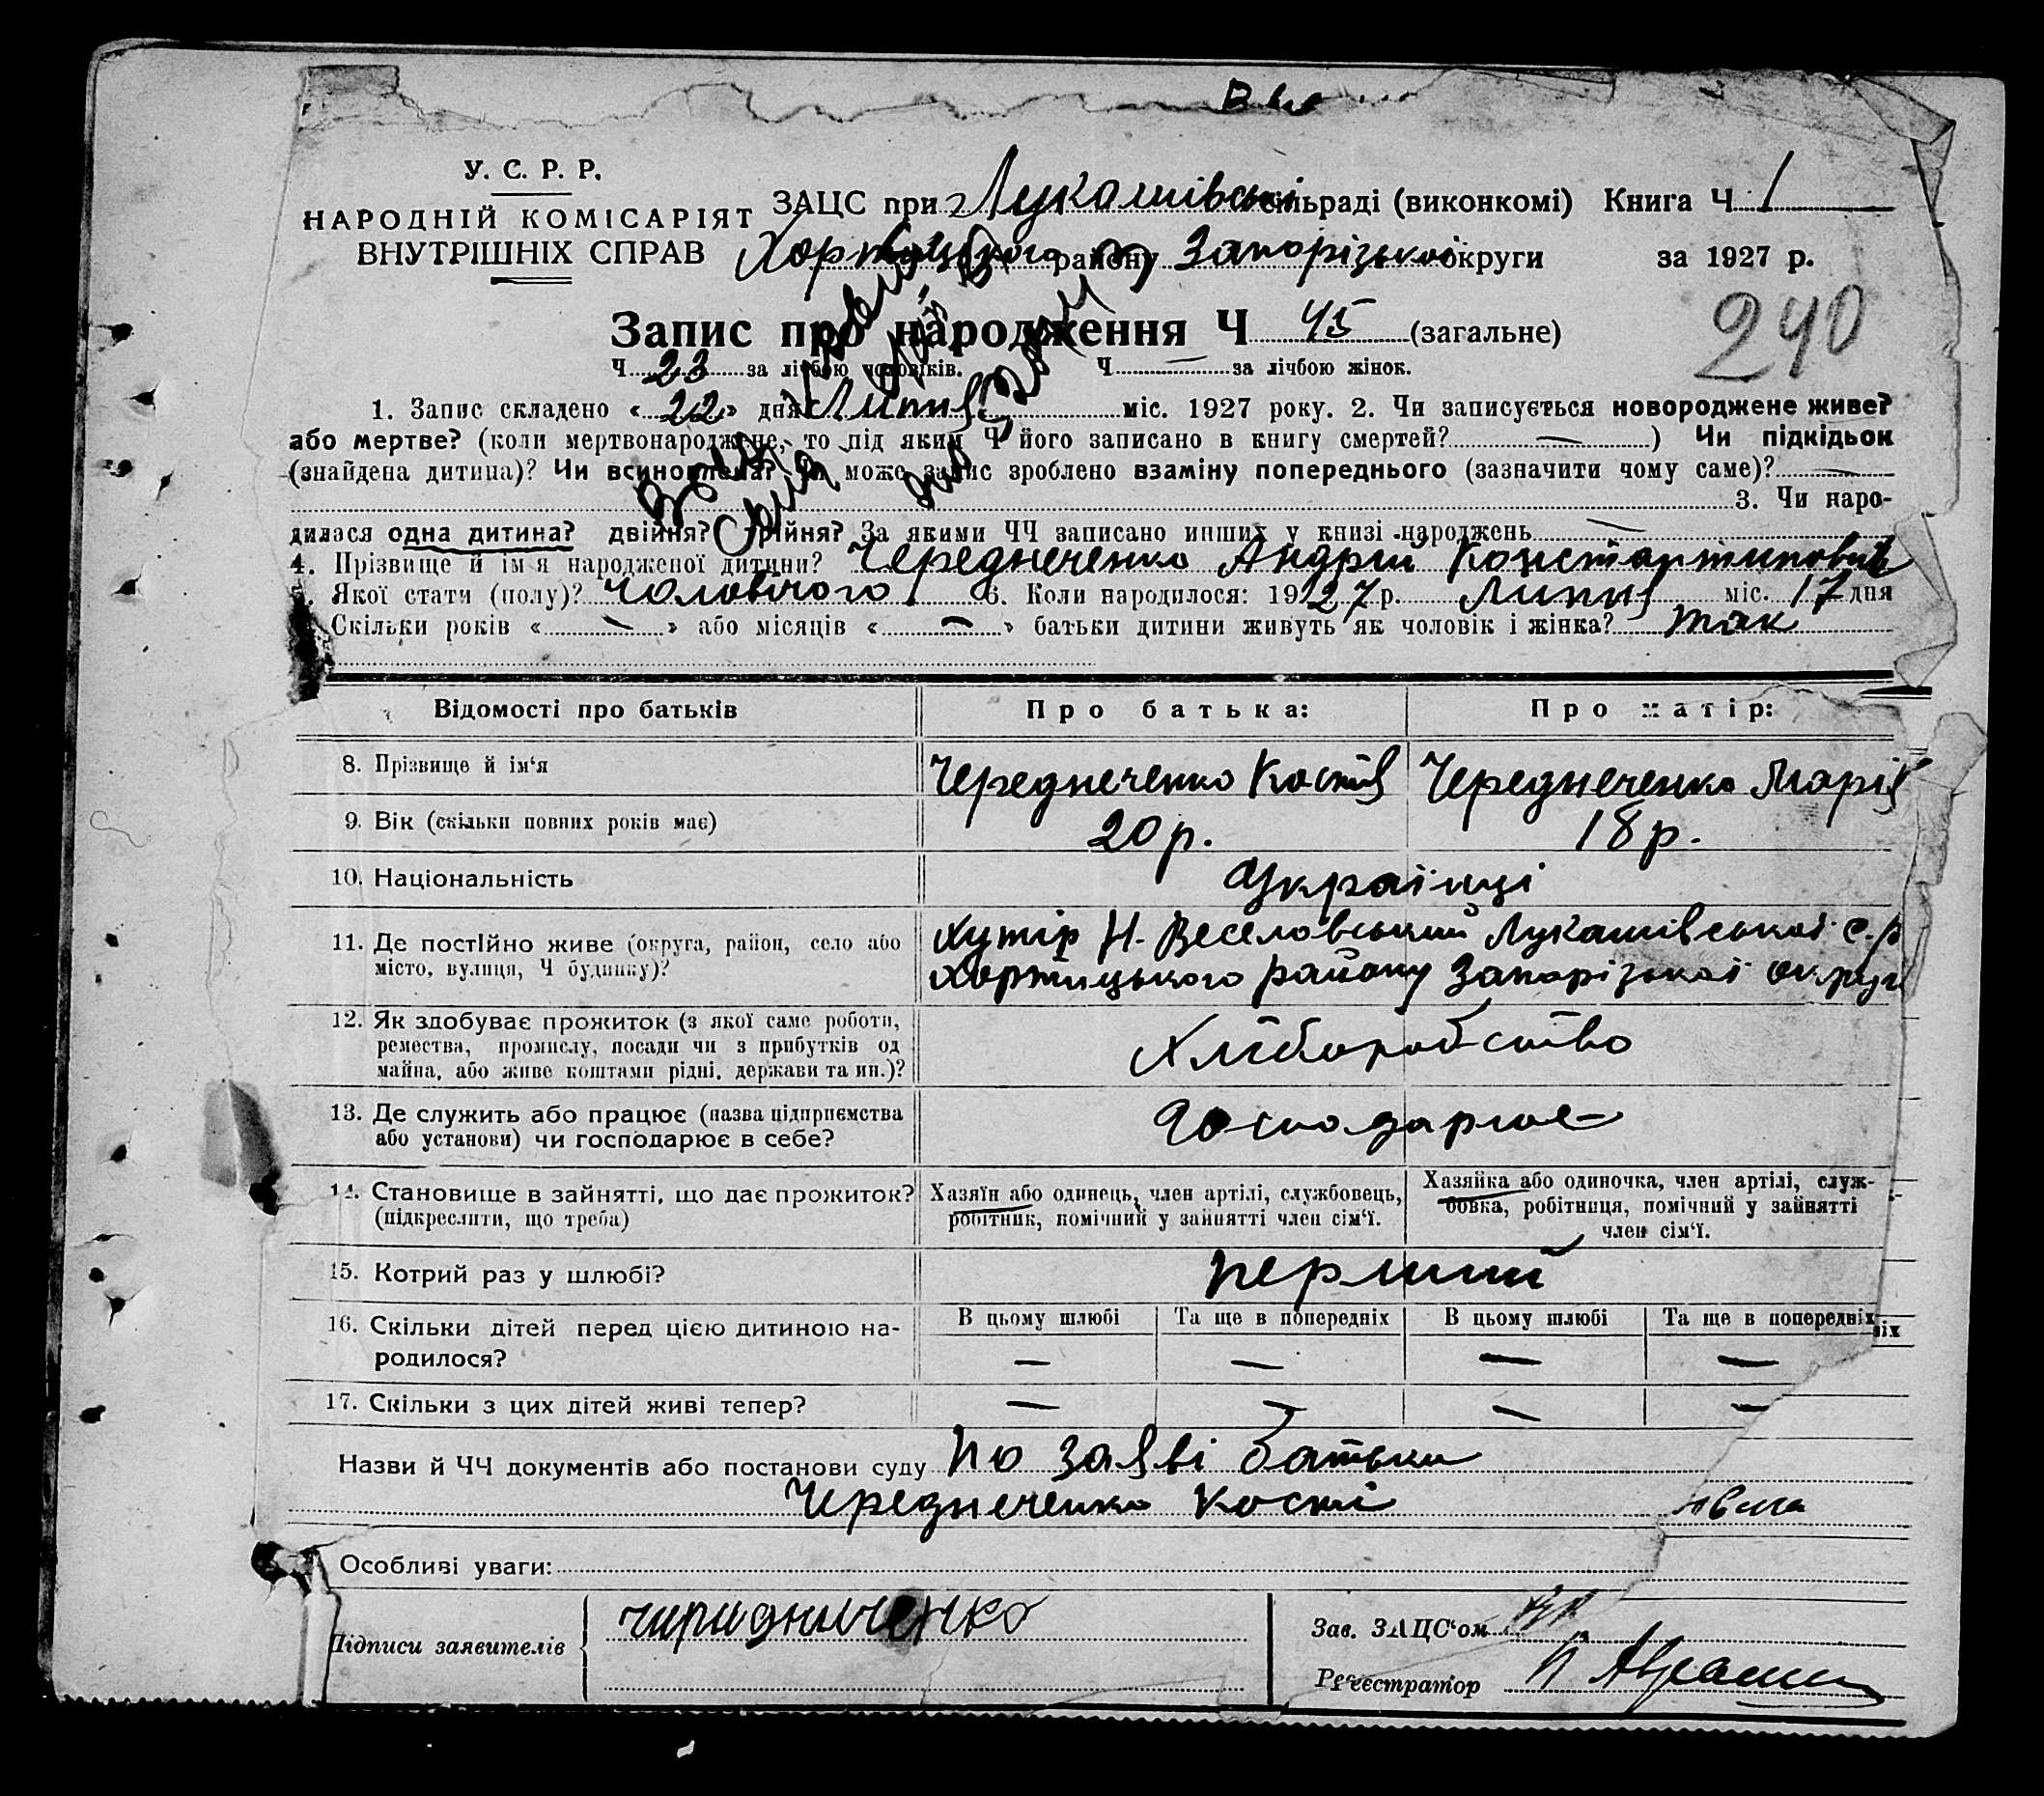 У. С. Р. Р.
НАРОДНІЙ КОМІСАРІЯТ
ВНУТРІШНІХ СПРАВ
ЗАЦС при Лукашівські сільраді (виконкомі) Книга Ч 1
Хортицького району Запорізької округи за 1927 р.
Запис про народження Ч 45 (загальне)
240
Ч 23 за лічбою чоловіків. Ч — за лічбою жінок.
1. Запис складено « 22 » дня Липня міс. 1927 року. 2. Чи записується новороджене живе?
або мертве? (коли мертвонароджене, то під яким Ч його записано в книгу смертей? — ) Чи підкідьок
(знайдена дитина)? Чи всиновлена? Чи може запис зроблено взаміну попереднього (зазначити чому саме)? —
3. Чи наро-
дилася одна дитина? двійня? трійня? За якими ЧЧ записано инших у книзі народжень —
4. Прізвище й ім'я народженої дитини? Чередниченко Андрій Константинович
Якої стати (полу)? Чоловічого 6. Коли народилося: 1927 р. Липня міс. 17 дня
Скільки років « — » або місяців « — » батьки дитини живуть як чоловік і жінка? так
Відомості про батьків Про батька: Про матір:
8. Прізвище й ім'я Чередниченко Костя Чередниченко Марія
9. Вік (скільки повних років має) 20 р. 18 р.
10. Національність Українці
11. Де постійно живе (округа, район, село або
місто, вулиця, Ч будинку)?
Хутір Н. Веселовський Лукашівської с.р
Хортицького району Запорізької округи
12. Як здобуває прожиток (з якої саме роботи,
ремества, промислу, посади чи з прибутків од
майна, або живе коштами рідні, держави та ин.)?
Хліборобство
13. Де служить або працює (назва підприємства
або установи) чи господарює в себе?
Господарює
14. Становище в зайнятті, що дає прожиток?
(підкреслити, що треба)
Хазяїн або одинець, член артілі, службовець,
робітник, помічний у зайнятті член сім'ї.
Хазяйка або одиночка, член артілі, служ-
бовка, робітниця, помічний у зайнятті
член сім'ї.
15. Котрий раз у шлюбі? перший
16. Скільки дітей перед цією дитиною на-
родилося?
В цьому шлюбі Та ще в попередніх В цьому шлюбі Та ще в попередніх
— — — —
17. Скільки з цих дітей живі тепер? — — — —
Назви й ЧЧ документів або постанови суду По заяві батька
Чередниченко Кості
Особливі уваги:
Підписи заявителів чиридниченко
Зав. ЗАЦС'ом
Реєстратор